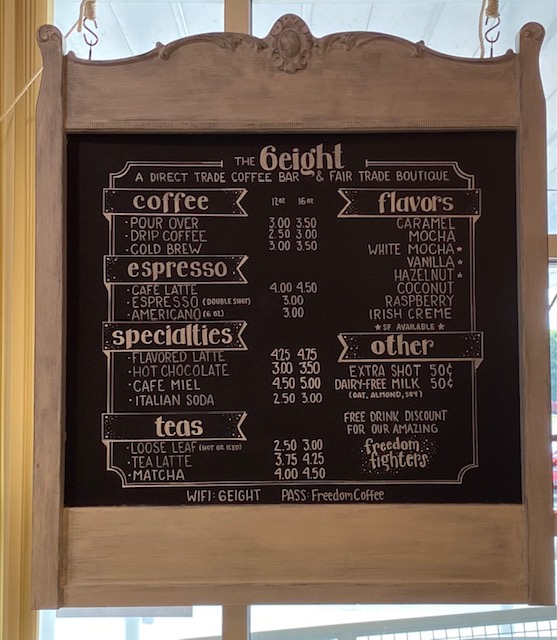 THE 6eight
A DIRECT TRADE COFFEE BAR & FAIR TRADE BOUTIQUE
coffee 12oz 16oz
·POUR OVER 3.00 3.50
·DRIP COFFEE 2.50 3.00
·COLD BREW 3.00 3.50
espresso
·CAFE LATTE 4.00 4.50
·ESPRESSO (DOUBLE SHOT) 3.00
·AMERICANO (6 OZ) 3.00
specialties
·FLAVORED LATTE 4.25 4.75
·HOT CHOCOLATE 3.00 3.50
·CAFE MIEL 4.50 5.00
·ITALIAN SODA 2.50 3.00
teas
·LOOSE LEAF (HOT OR ICED) 2.50 3.00
·TEA LATTE 3.75 4.25
·MATCHA 4.00 4.50
flavors
CARAMEL
MOCHA
WHITE MOCHA*
VANILLA*
HAZELNUT*
COCONUT
RASPBERRY
IRISH CREME
*SF AVAILABLE*
other
EXTRA SHOT 50¢
DAIRY-FREE MILK 50¢
(OAT, ALMOND, SOY)
FREE DRINK DISCOUNT
FOR OUR AMAZING
freedom
fighters
WIFI: 6EIGHT PASS: FreedomCoffee